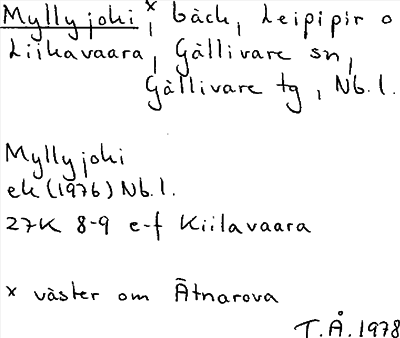 Myllyjoki ×, bäck, Leipipir o
Liikavaara, Gällivare sn,
Gällivare tg, Nb.l.
Myllyjoki
ek (1976) Nb.l.
27K 8-9 e-f Kiilavaara
× väster om Ätnarova
T.Å. 1978